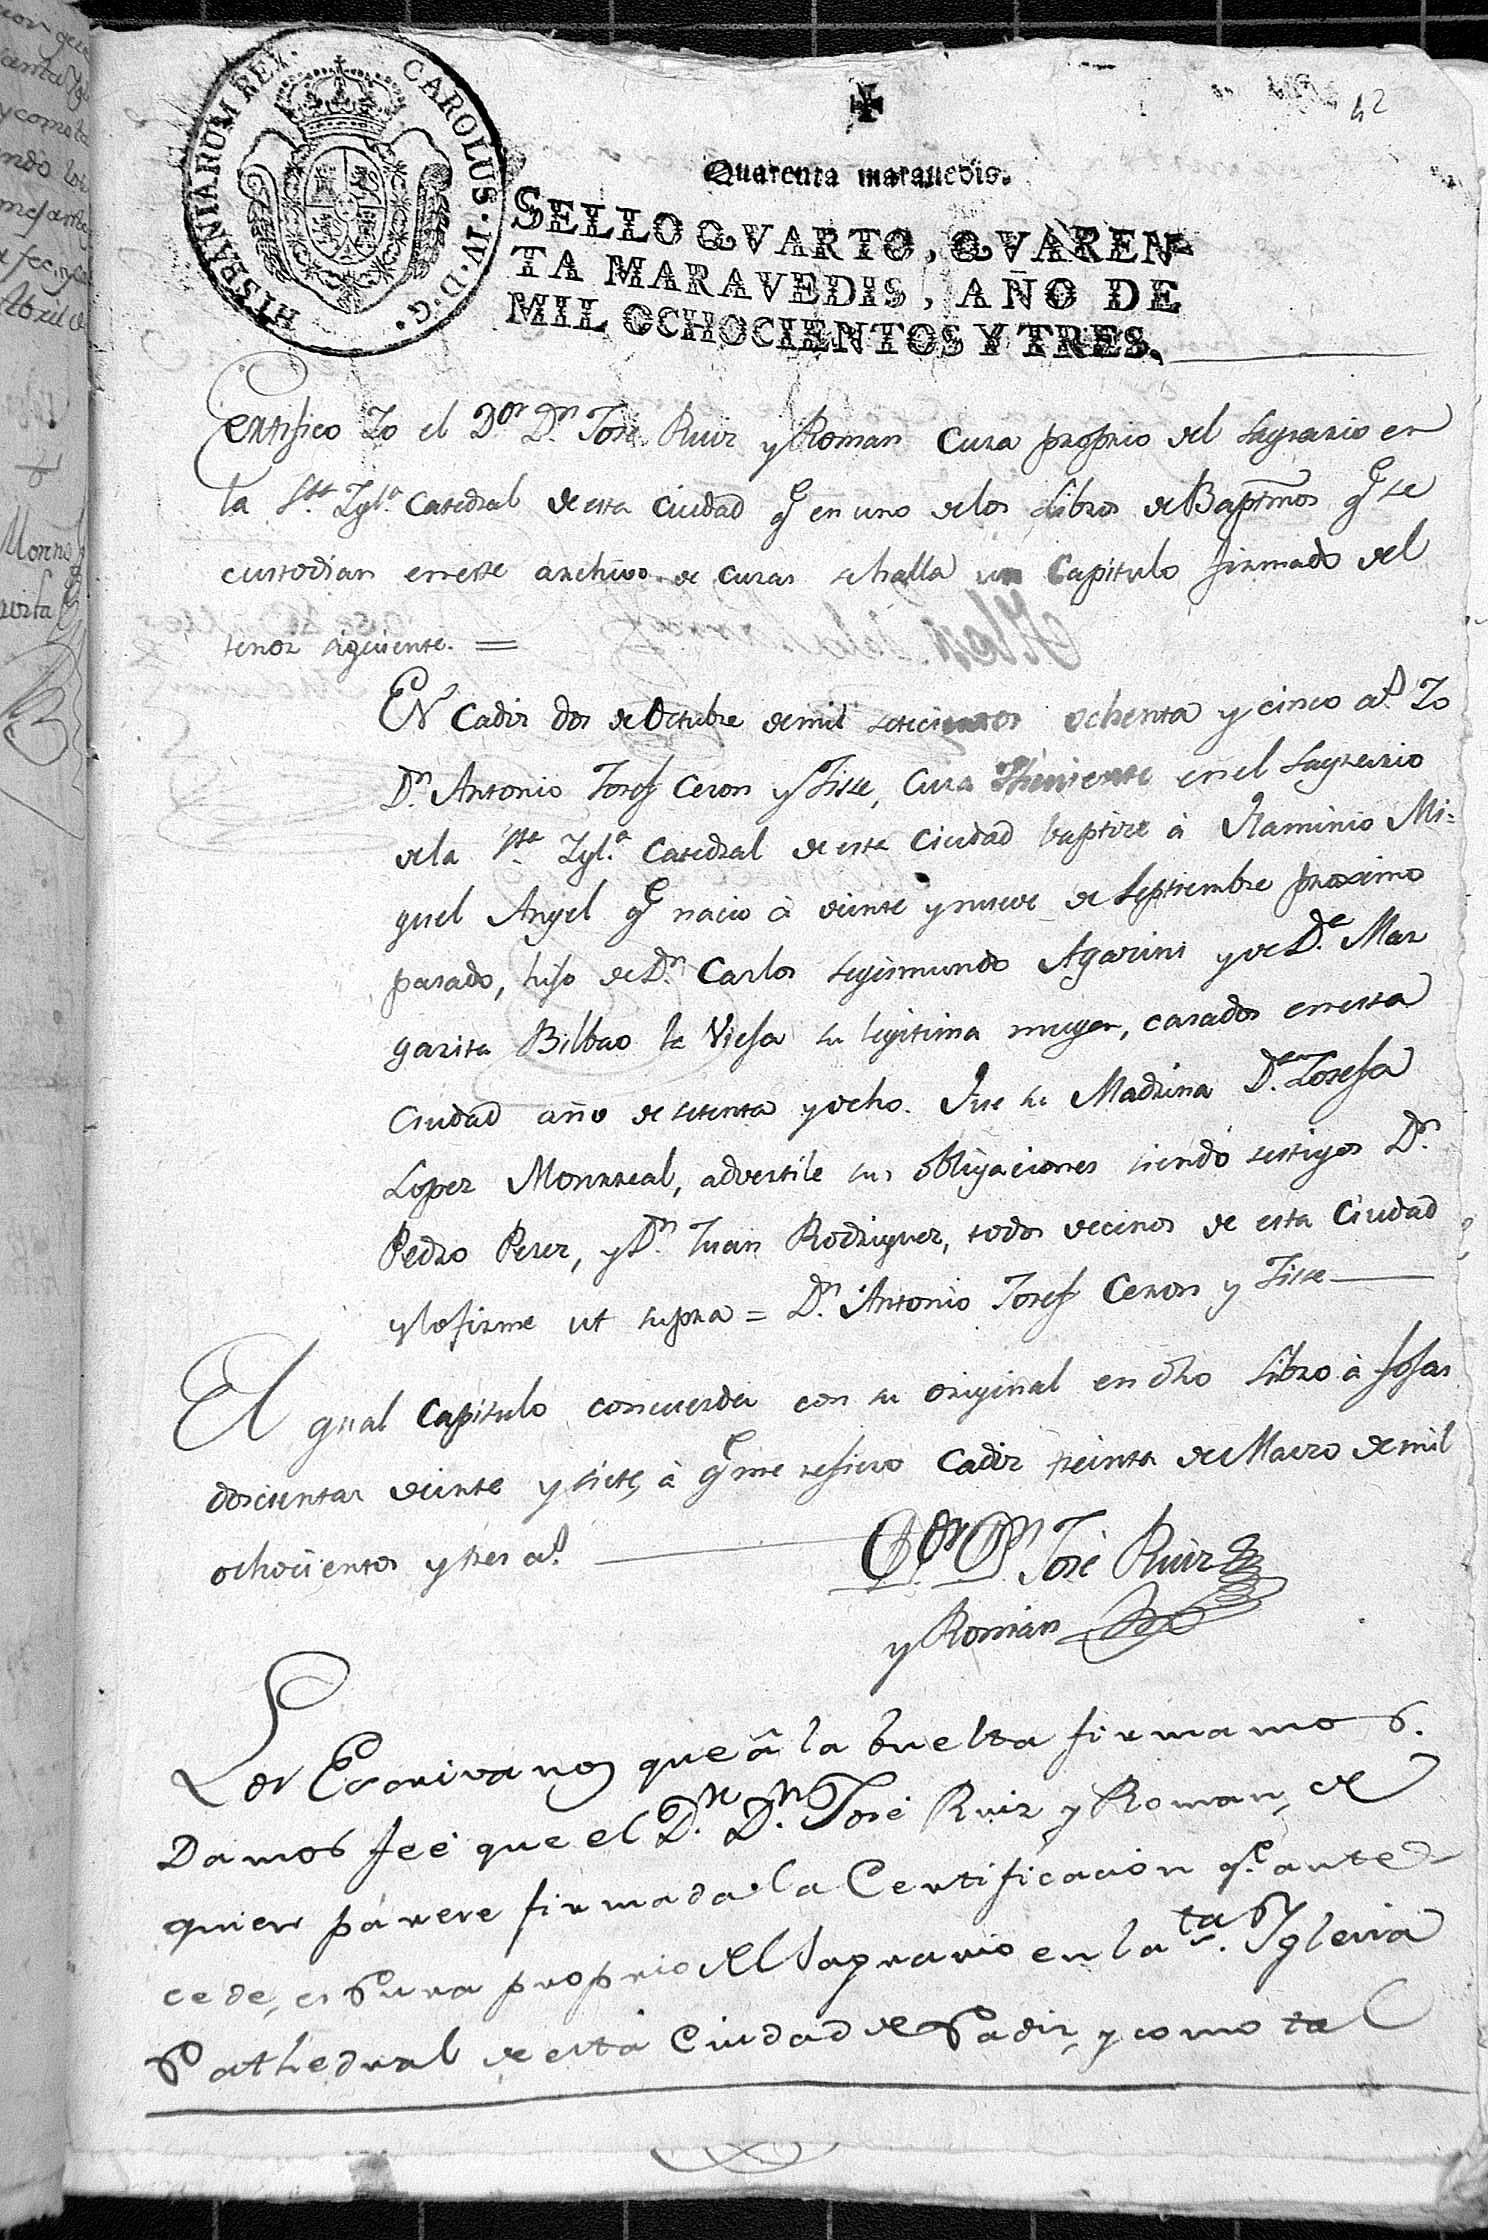 42
HISPANIARUM REX. CAROLUS·IV·D·G·
Quarenta maravedis.
SELLO QVARTO, QVAREN-
TA MARAVEDIS, AÑO DE
MIL OCHOCIENTOS Y TRES.
Certifico Yo el D.or D.n José Ruiz y Roman Cura proprio del Sagrario en
la S.ta Ygl.a Catedral de esta Ciudad q.e en uno de los Libros de Baptismos q.e se
custodian en este archivo de curas se halla un Capitulo firmado del
tenor siguiente. =
En Cadiz dos de Octubre de mil setecientos ochenta y cinco a.s Yo
D.n Antonio Josef Ceron y Tisse, Cura Theniente en el Sagrario
de la S.ta Ygl.a Catedral de esta Ciudad baptize à Flaminio Mi-
guel Angel q.e nacio à veinte y nueve de Septiembre proximo
pasado, hijo de D.n Carlos Segismundo Agazini y de D.a Mar
garita Bilbao la Vieja su legitima muger, casados en esta
Ciudad año de setenta y ocho. Fue su Madrina D.a Josefa
Lopez Monrreal, advertile sus obligaciones siendo testigos D.n
Pedro Perez, y D.n Juan Rodriguez, todos vecinos de esta Ciudad
y lo firme ut supra = D.n Antonio Josef Ceron y Tisse
El qual Capitulo concuerda con su original en dho Libro à fojas
doscientas veinte y siete, à q.e me refiero Cadiz treinta de Marzo de mil
ochocientos y tres a.s
D.or D.n José Ruiz
y Roman
Los Escrivanos que â la buelta firmamos.
Damos feé que el D.r D.n José Ruiz y Roman, de
quien párece firmada la Certificacion q.e ante-
cede, es Cura proprio del Sagrario en la S.ta Yglesia
Cathedral de esta Ciudad de Cadiz, y como tal